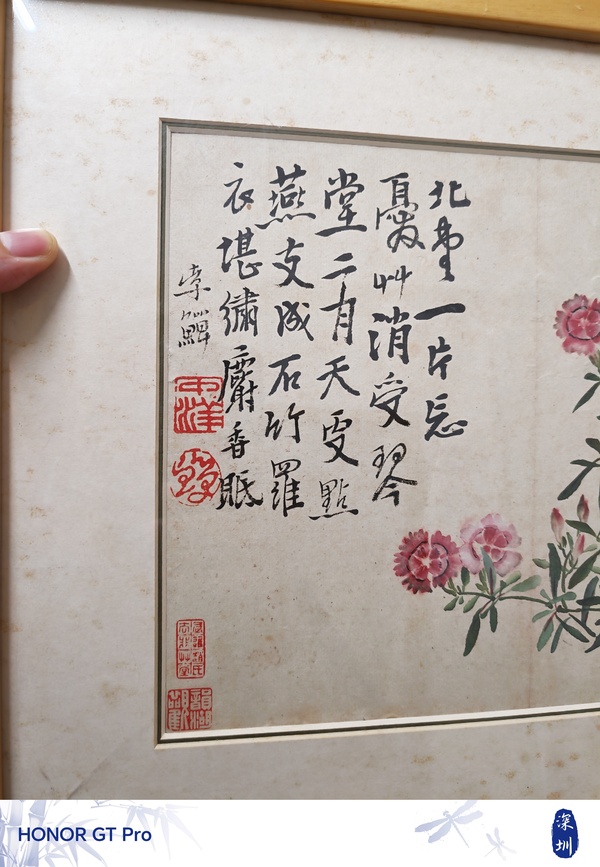 北堂一片忘
憂艸消受琴
堂二月天更點
燕支成石竹羅
衣堪繡麝香眠
李鱓
中洋
HONOR GT Pro
深圳